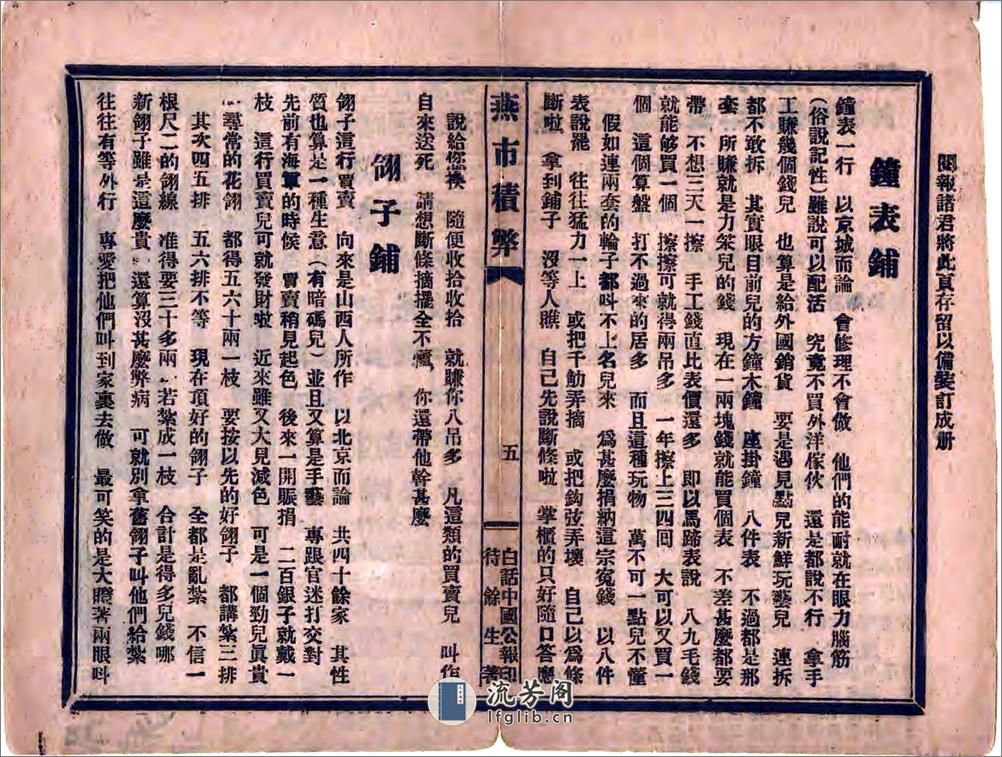 閱報諸君將此頁存留以備裝訂成册
鐘表鋪
鐘表一行　以京城而論　會修理不會做　他們的能耐就在眼力腦筋
（俗說記性）雖說可以配活　究竟不買外洋傢伙　還是都說不行　拿手
工賺幾個錢兒　也算是給外國銷貨　要是遇見點兒新鮮玩藝兒　連拆
都不敢拆　其實眼目前兒的方鐘木鐘　座掛鐘　八件表　不過都是那
套　所賺就是力笨兒的錢　現在一兩塊錢就能買個表　不差甚麼都要
帶　不想三天一擦　手工錢直比表價還多　即以馬蹄表說　八九毛錢
就能够買一個　擦擦可就得兩吊多　一年擦上三四回　大可以又買一
個　這個算盤　打不過來的居多　而且這種玩物　萬不可一點兒不懂
假如連兩套的輪子都呌不上名兒來　爲甚麼捐納這宗寃錢　以八件
表說罷　往往猛力一上　或把千觔弄摘　或把鈎弦弄壞　自己以爲條
斷啦　拿到鋪子　沒等人瞧　自己先說斷條啦　掌櫃的只好隨口答應
燕市積弊
五
白話中國公報印
待餘生著
說給您換　隨便收拾收拾　就賺你八吊多　凡這類的買賣兒　叫作
自來送死　請想斷條摘擺全不懂，你還帶他幹甚麼
翎子鋪
翎子這行買賣　向來是山西人所作　以北京而論　共四十餘家　其性
質也算是一種生意（有暗碼兒）並且又算是手藝　專跟官迷打交對
先前有海軍的時候　買賣稍見起色　後來一開賑捐　二百銀子就戴一
枝　這行買賣兒可就發財啦　近來雖又大見減色　可是一個勁兒眞貴
尋常的花翎　都得五六十兩一枝　要按以先的好翎子　都講紮三排
其次四五排　五六排不等　現在頂好的翎子　全都是亂紮　不信一
根尺二的翎線　准得要三十多兩　若紮成一枝　合計是得多兒錢哪
新翎子雖是這麼貴　還算沒甚麼弊病　可就別拿舊翎子叫他們給紮
往往有等外行　專愛把他們叫到家裏去做　最可笑的是大瞪著兩眼呌
流芳阁
lfglib.cn